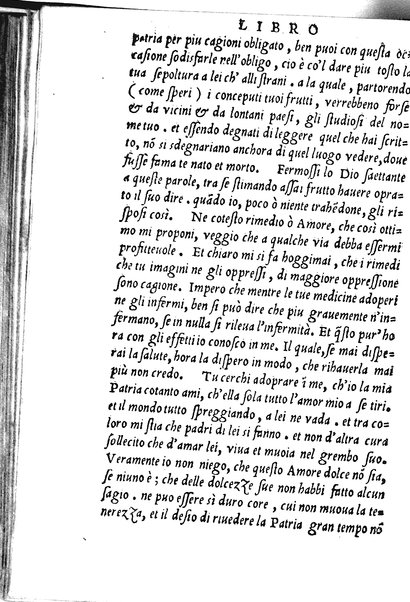 LIBRO
patria per piu cagioni obligato, ben puoi con questa oc̄
casione sodisfarle nell'obligo, cio è co'l dare piu tosto la
tua sepoltura a lei ch' alli strani. a la quale, partorendo
(come speri) i conceputi tuoi frutti, verrebbeno forse
& da vicini & da lontani paesi, gli studiosi del no-
me tuo. et essendo degnati di leggere quel che hai scrit-
to, nō si sdegnariano anchora di quel luogo vedere, doue
fusse fama te nato et morto. Fermossi lo Dio saettante
a queste parole, tra se stimando assai frutto hauere opra-
to il suo dire. quādo io, poco ò niente trahēdone, gli ri-
sposi così. Ne cotesto rimedio ò Amore, che così otti-
mo mi proponi, veggio che a qualche via debba essermi
profitteuole. Et chiaro mi si fa hoggimai, che i rimedi
che tu imagini ne gli oppressi, di maggiore oppressione
sono cagione. Impero che mentre le tue medicine adoperi
ne gli infermi, ben si può dire che piu grauemente n'in-
fermano, se in nulla si rileua l'infermità. Et q̄sto pur' ho
ra con gli effetti io conosco in me. Il quale, se mai dispe-
rai la salute, hora la dispero in modo, che rihauerla mai
più non credo. Tu cerchi adoprare ī me, ch'io la mia
Patria cotanto ami, ch'ella sola tutto l'amor mio a se tiri.
et il mondo tutto spreggiando, a lei ne vada. et tra co-
loro mi stia che padri di lei si fanno. et non d'altra cura
sollecito che d'amar lei, viua et muoia nel grembo suo.
Veramente io non niego, che questo Amore dolce nō sia,
se niuno è; che delle dolcezze sue non habbi fatto alcun
sagio. ne puo essere sì duro core, cui non muoua la te-
nerezza, et il desio di riuedere la Patria gran tempo nō